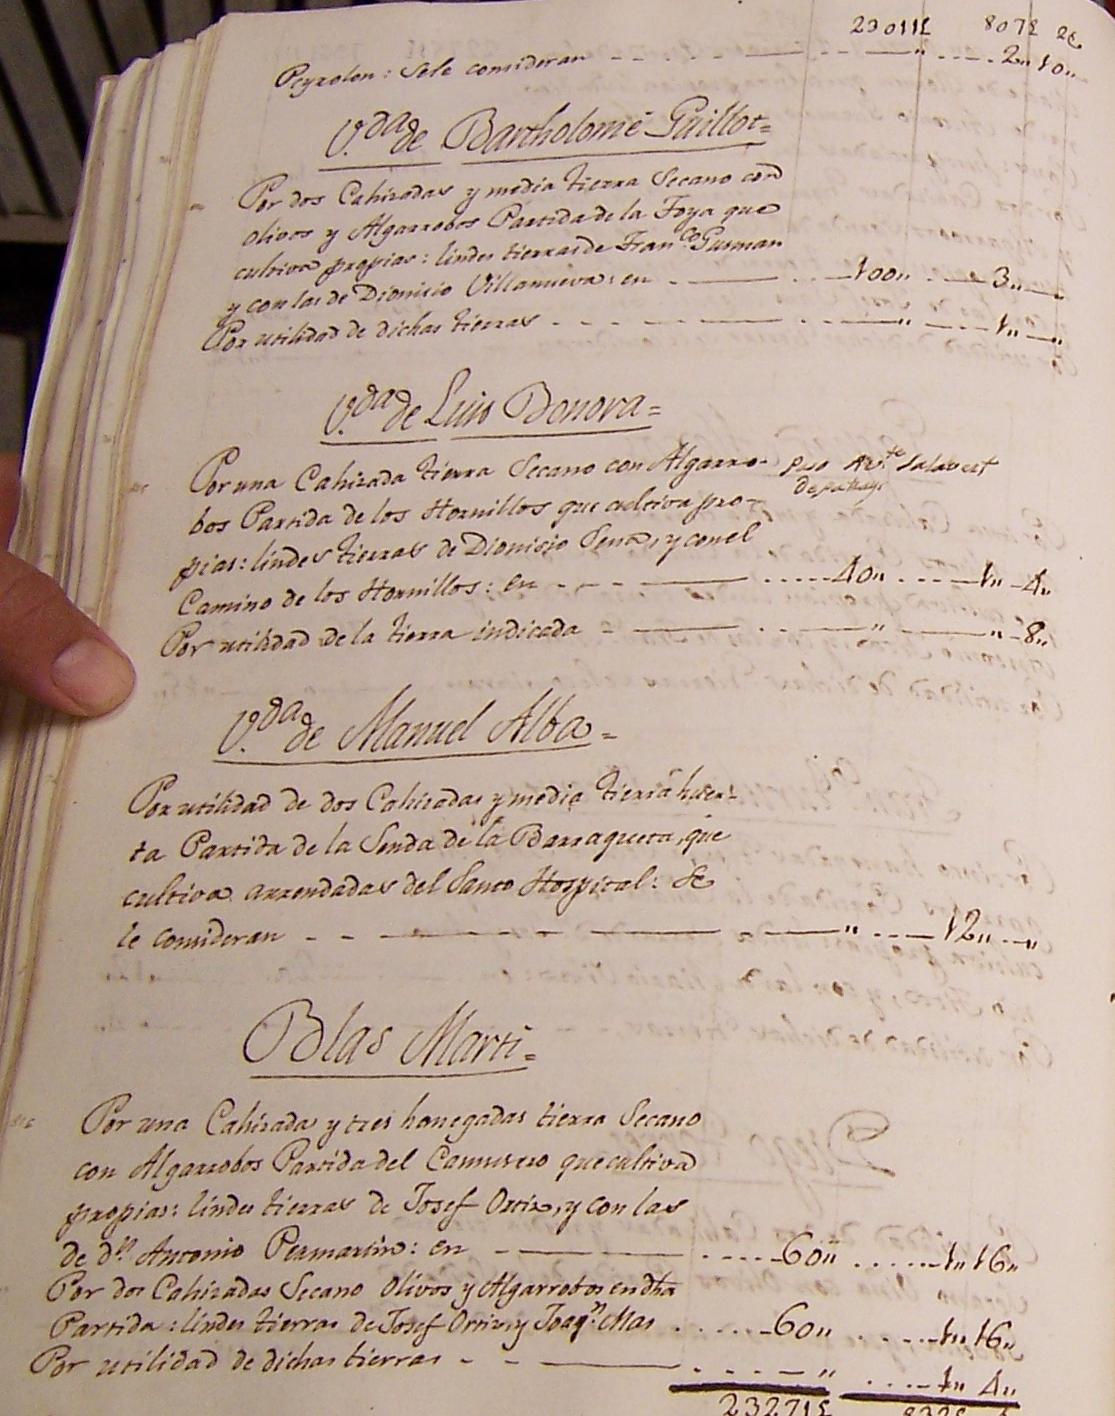 23011£ 807£ 2s
Peyrolon: Sele consideran - - - - - - " - - - - 2" 10"
V.da de Bartholomé Guillot=
Por dos Cahizadas y media tierra Secano con
olivos y Algarrobos Partida de la Foya que
cultiva propias: lindes tierras de Fran.co Gusman
y con las de Dionisio Villanueva: en - - - 100" - - - 3" - "
Por utilidad de dichas tierras - - - - - - - " - - - 1" - "
V.da de Luis Bonora=
Por una Cahizada tierra Secano con Algarro- Paso Salabert
bos Partida de los Hornillos que cultiva pro-
pias: lindes tierras de Dionisio Sena, y con el
Camino de los Hornillos: en - - - - - - 40" - - - - 1" - 4"
Por utilidad de la tierra indicada - - - - " - - - " - 8"
V.da de Manuel Alba=
Por utilidad de dos Cahizadas y media tierra huer-
ta Partida de la Senda de la Barraqueta, que
cultiva arrendadas del Santo Hospital: Se
le consideran - - - - - - - - - " - - - 12" - "
Blas Marti=
Por una Cahizada y tres hanegadas tierra Secano
con Algarrobos Partida del que cultiva
propias: lindes tierras de Josef Ortiz, y con las
de d.n Antonio Permartin: en - - - - - - 60" - - - - 1" 16"
Por dos Cahizadas Secano Olivos y Algarrobos en dha
Partida: lindes tierras de Josef Ortiz y Joaq.n Mas - - - 60" - - - - 1" 16"
Por utilidad de dichas tierras - - - - - - - " - - - 1" 4"
23271£